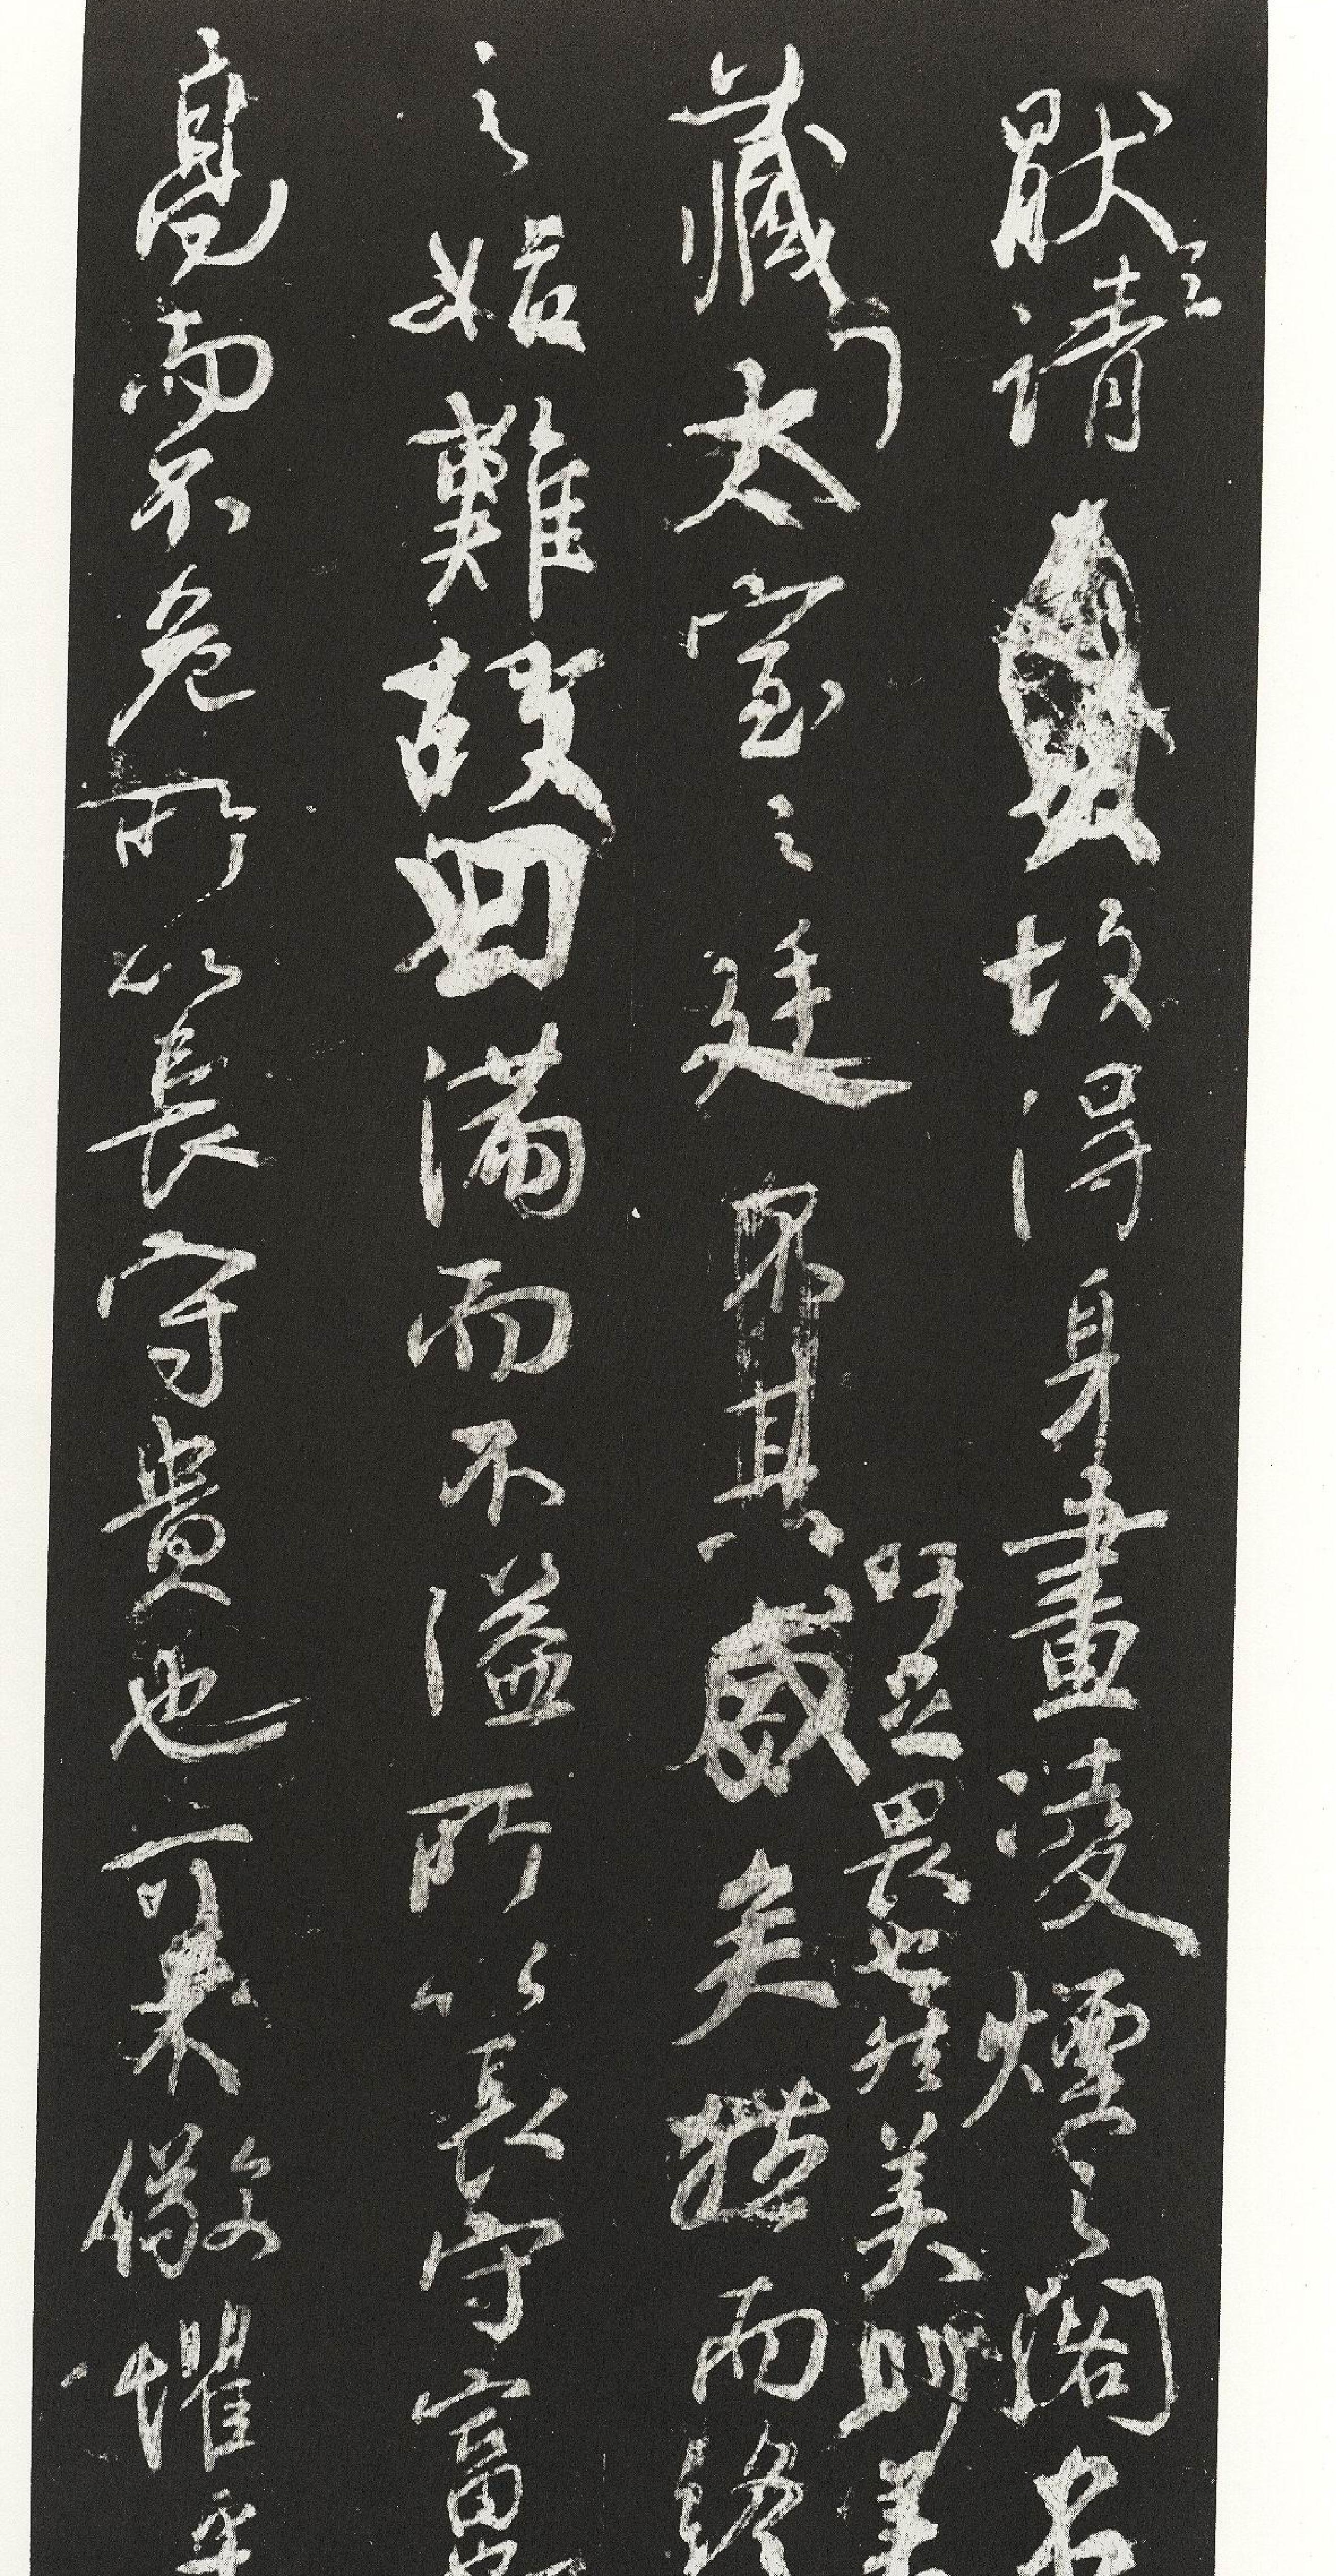 厭之請故得身畫凌煙之閣名
吁足畏也然美則美
藏太室之廷其盛矣而終
之始難故曰滿而不溢所以長守富也
高而不危所以長守貴也可不儆懼乎